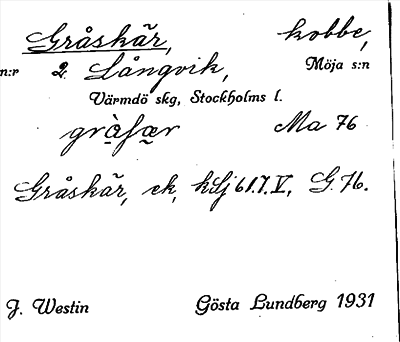 Gråskär, kobbe,
n:r 2 Långvik, Möja s:n
Värmdö skg, Stockholms l.
Ma 76
Gråskär, ek, kSj 61.7.V, G. 76.
J. Westin Gösta Lundberg 1931